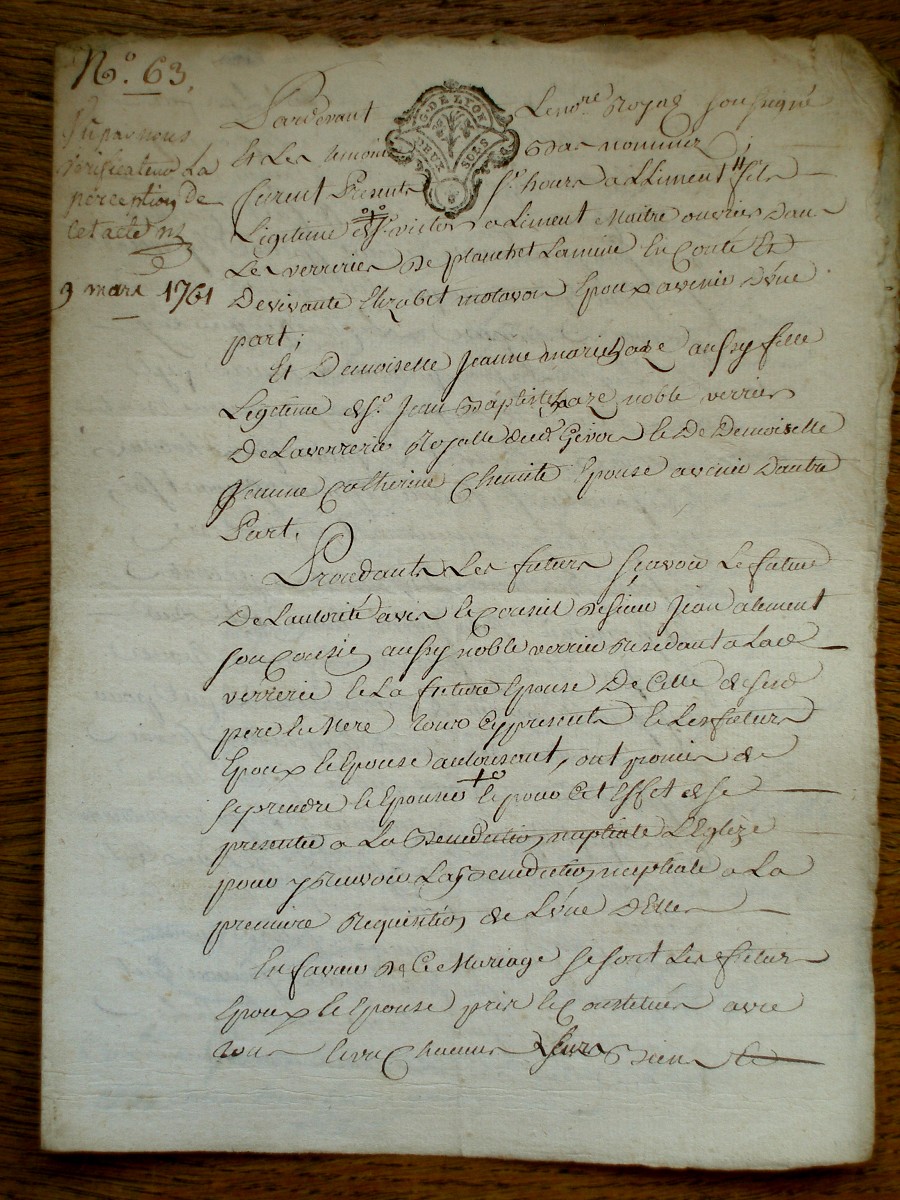 No. 63.
Vu par nous
vérificateur La
péception de
cet acte
9 mars 1761
G. DE LYON
HUIT SOLS
Pardevant Le no.re Royal soussigné
Et Les témoins Bas nommés ;
furent Présents Sr. aLiment fils
Légitime de Sr. victor aLiment Maitre ouvrier Dans
Les verreries De planchet Lamine En Conté Et
De vivante Elizabet Epoux avenir D'vne
part ;
Et Demoiselle Jeanne marie haze aussy fille
Légitime de Sr. Jean Baptiste haze noble verrier
De La verrerie Royalle dud. Givor Et De Demoiselle
Jeanne Catherine Epouse avenir Dautre
Part.
Procedants Les futurs sçavoir Le futur
De Lautorité avis Et Conseil De sieur Jean aliment
son Cousin aussy noble verrier Residant a Lad.
verrerie Et La future Epouse De Celle de sesd.
pere Et Mere tous Cy presents Et Les futurs
Epoux Et Epouse autorisant, ont promis de
se prendre Et Epouser Et pour Cet Effet de se
presenter a La Benediction nuptiale L'Eglize
pour y Recevoir La Benediction nuptiale a La
premiere Requisition de L'vne D'Elles
En faveur De Ce Mariage se sont Les futurs
Epoux Et Epouse pris Et Constitués avec
tous Et vn Chacuns Leurs Biens Et